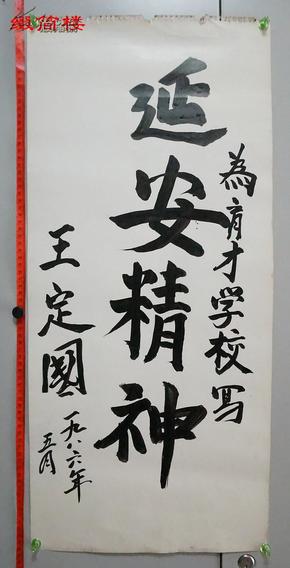 為育才学校写
延安精神
王定國
一九八六年
五月
缀简楼